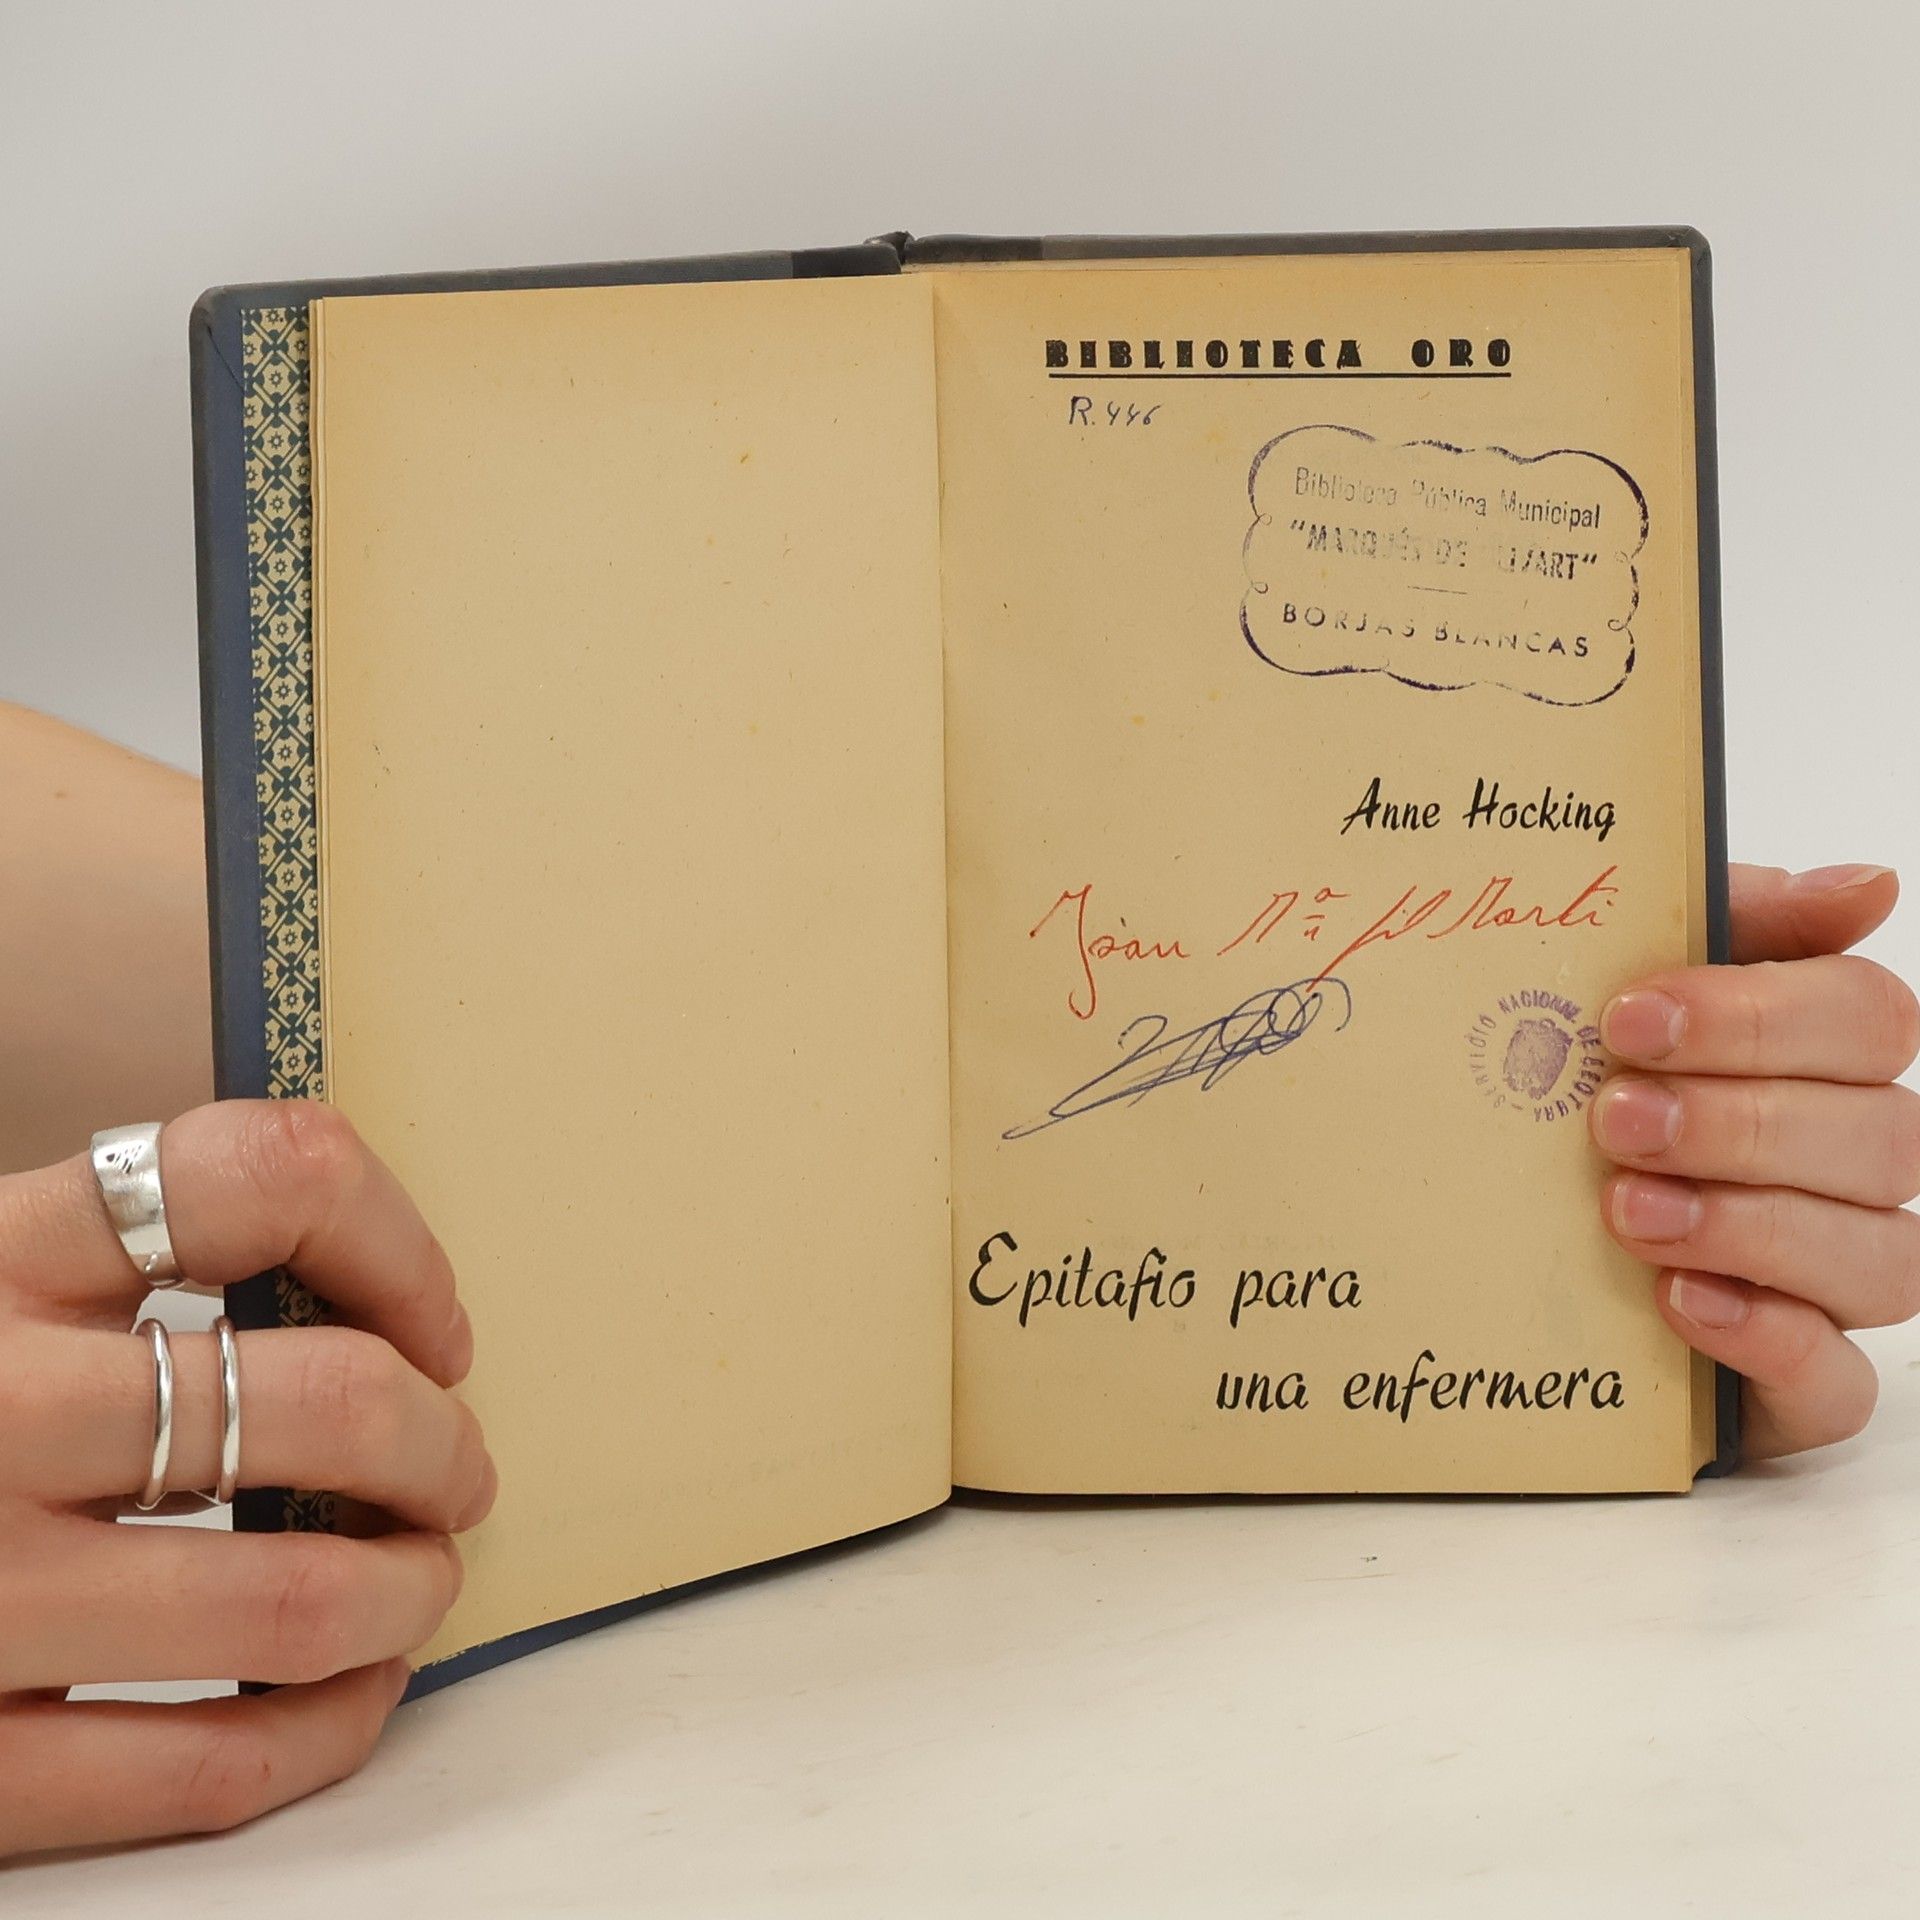 BIBLIOTECA ORO
R. 446
Biblioteca Pública Municipal
"MARQUÉS DE
BORJAS BLANCAS
Anne Hocking
Joan Mª Gil Martí
SERVICIO NACIONAL DE LECTURA
Epitafio para
una enfermera